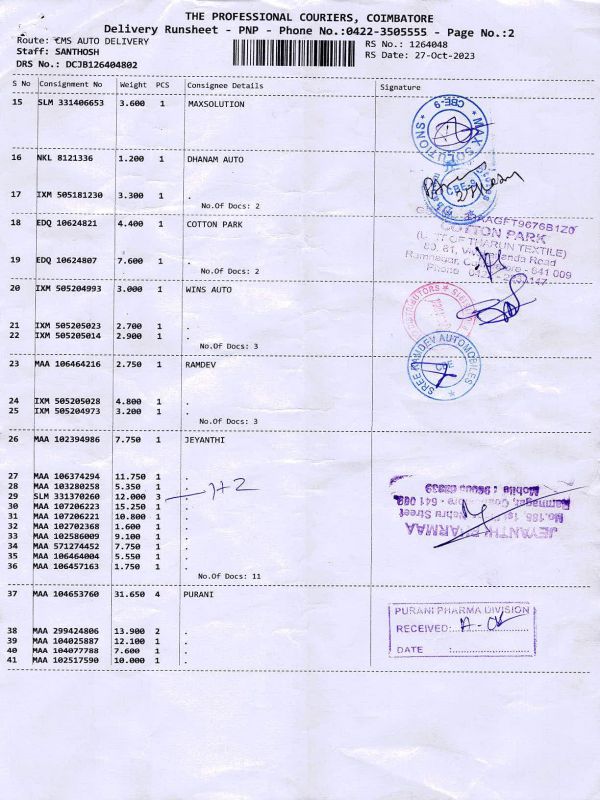 THE PROFESSIONAL COURIERS, COIMBATORE
Delivery Runsheet - PNP - Phone No.:0422-3505555 - Page No.:2
Route: €MS AUTO DELIVERY
RS No.: 1264048
Staff: SANTHOSH
RS Date: 27-Oct-2023
DRS No.: DCJB126404802
S No Consignment No Weight PCS Consignee Details Signature
15 SLM 331406653 3.600 1 MAXSOLUTION
CBE-9
MAX SOLUTIONS
16 NKL 8121336 1.200 1 DHANAM AUTO
17 IXM 505181230 3.300 1 .
No.Of Docs: 2
18 EDQ 10624821 4.400 1 COTTON PARK
COTTON PARK
(U
OF THARUN TEXTILE)
Road
Ramnagar, Co
ore - 641 009
Phone
19 EDQ 10624807 7.600 1 .
No.Of Docs: 2
20 IXM 505204993 3.000 1 WINS AUTO
21 IXM 505205023 2.700 1 .
22 IXM 505205014 2.900 1 .
No.Of Docs: 3
23 MAA 106464216 2.750 1 RAMDEV
SREE RAMDEV AUTOMOBILES
CBE
24 IXM 505205028 4.800 1 .
25 IXM 505204973 3.200 1 .
No.Of Docs: 3
26 MAA 102394986 7.750 1 JEYANTHI
27 MAA 106374294 11.750 1 .
28 MAA 103280258 5.350 1 .
29 SLM 331370260 12.000 3 . 1+2
30 MAA 107206223 15.250 1 .
31 MAA 107206221 10.800 1 .
32 MAA 102702368 1.600 1 .
33 MAA 102586009 9.100 1 .
34 MAA 571274452 7.750 1 .
35 MAA 106464004 5.550 1 .
36 MAA 106457163 1.750 1 .
No.Of Docs: 11
JEYANTHI PHARMAA
Nehru Street
Mobile :
37 MAA 104653760 31.650 4 PURANI
PURANI PHARMA DIVISION
RECEIVED:
DATE :
38 MAA 299424806 13.900 2 .
39 MAA 104025887 12.100 1 .
40 MAA 104077788 7.600 1 .
41 MAA 102517590 10.000 1 .